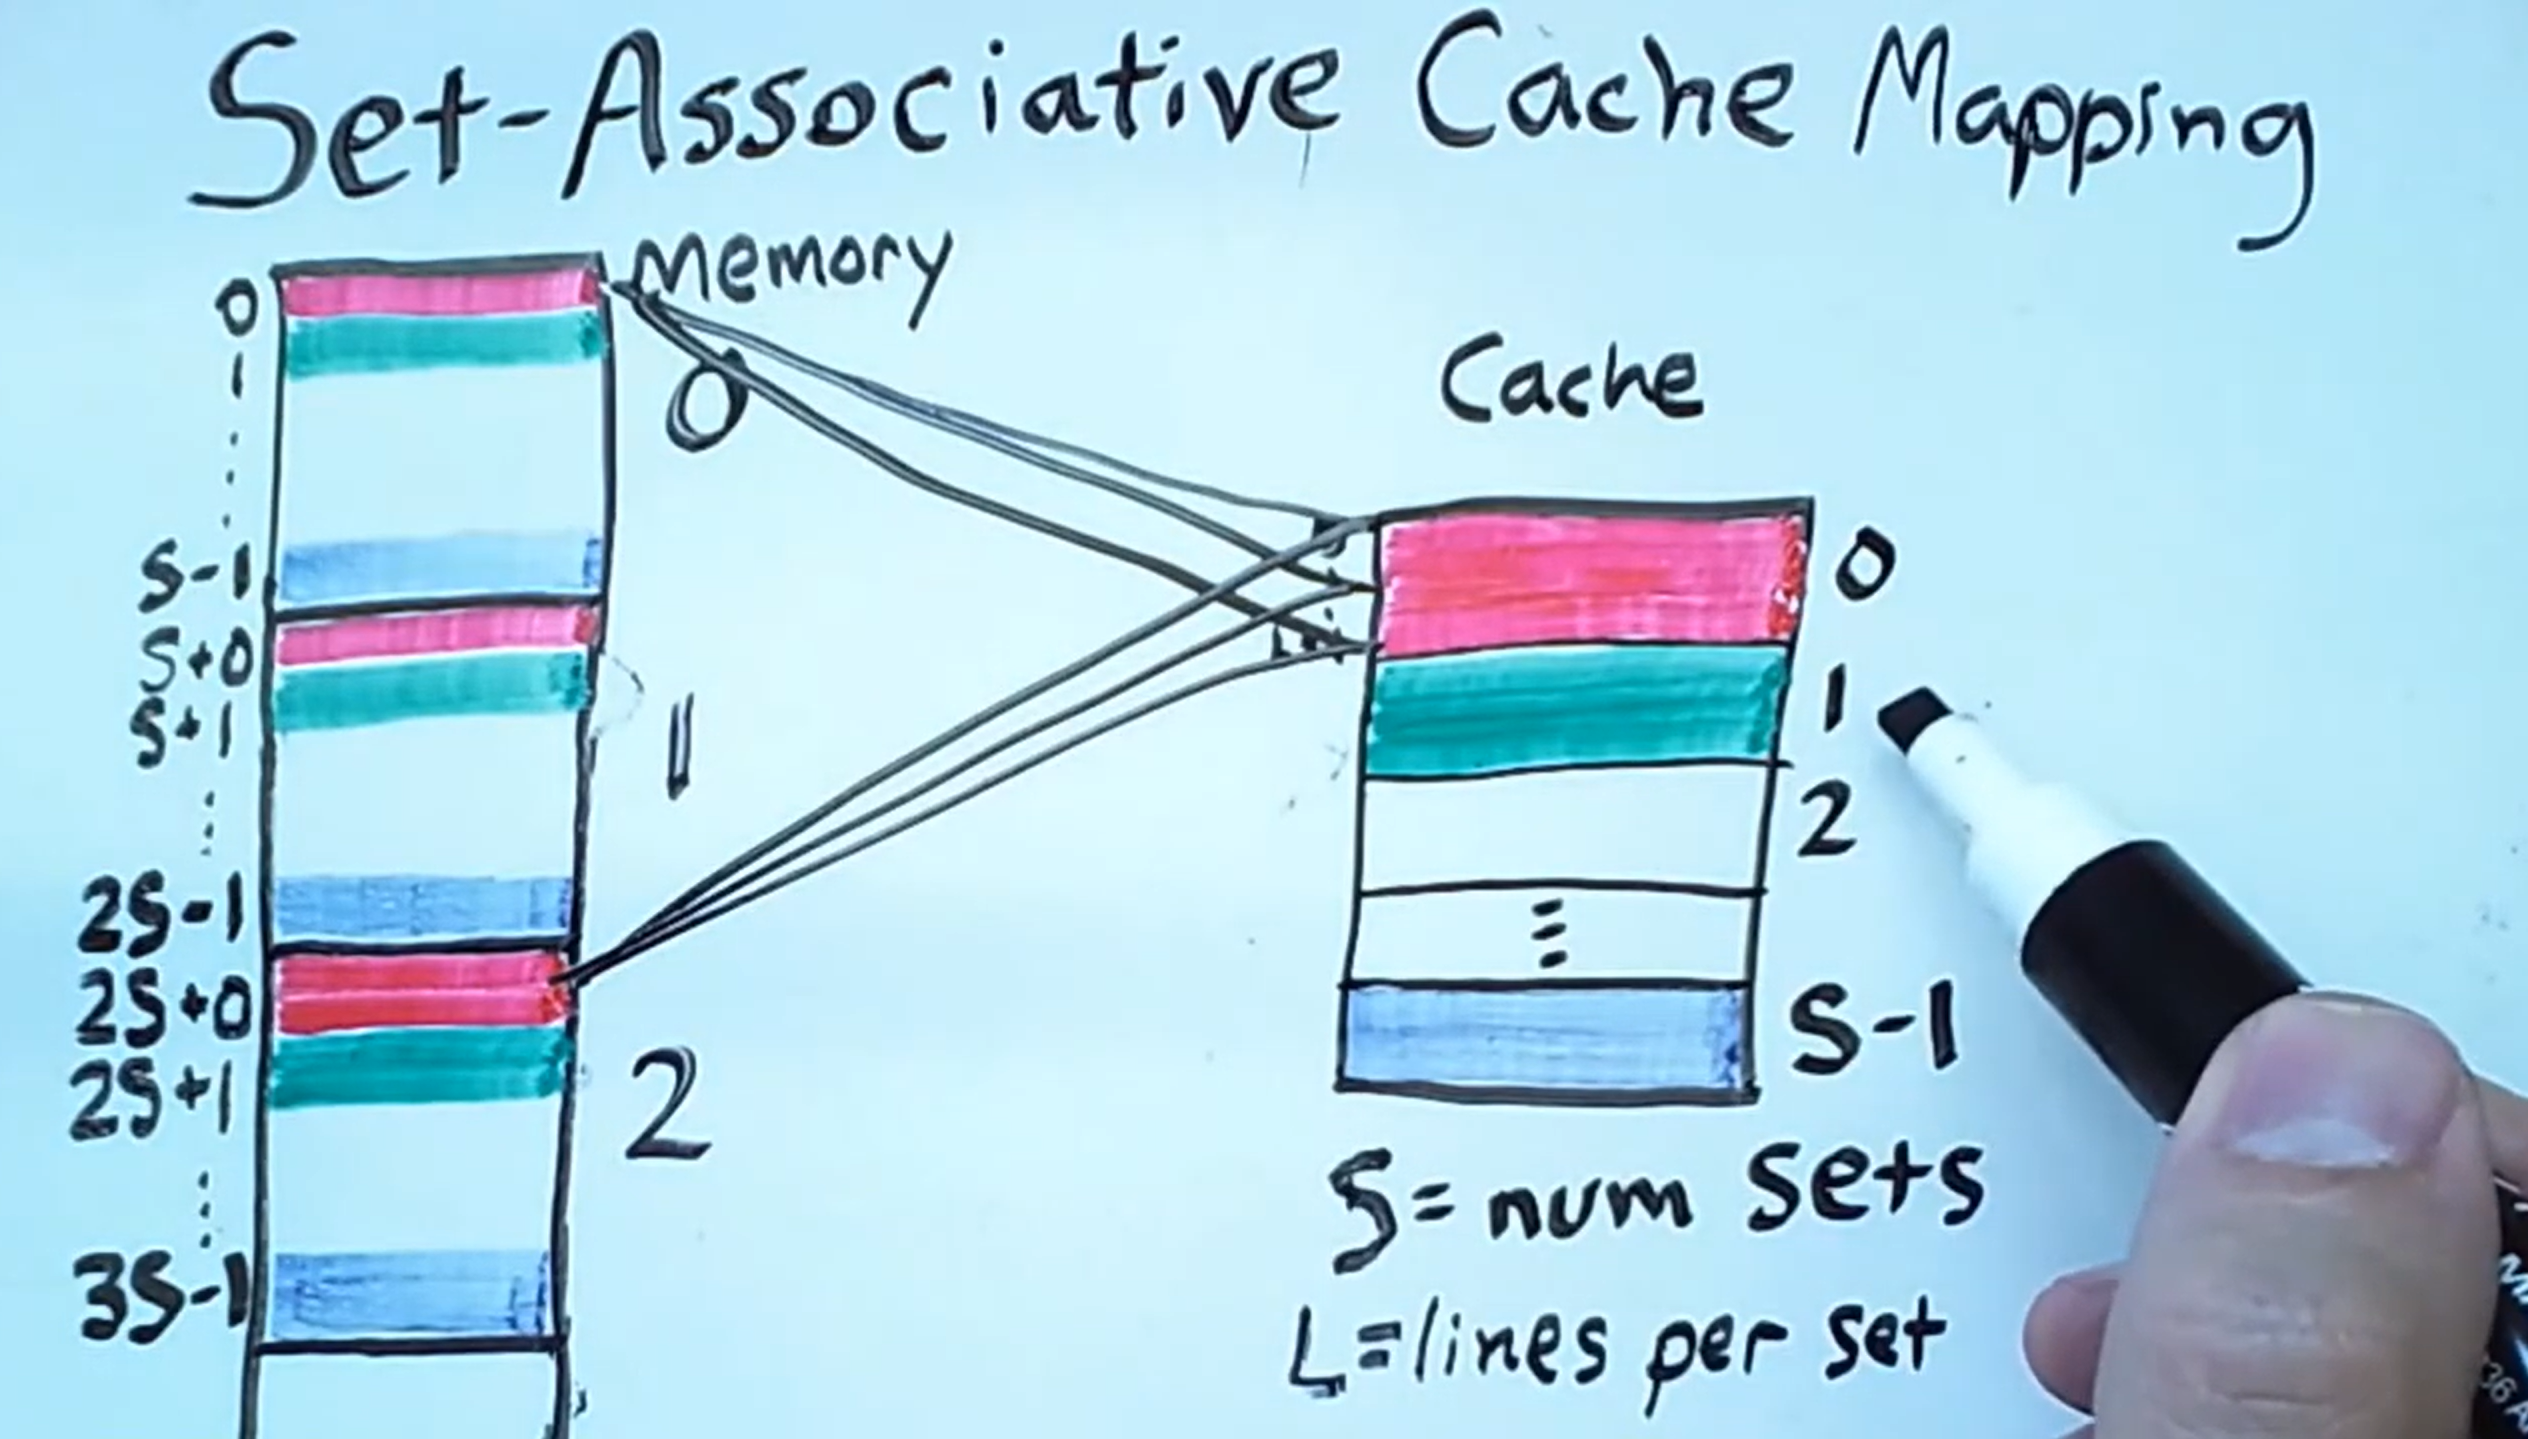 Set-Associative Cache Mapping
Memory
Cache
0
1
S-1
S+0
S+1
2S-1
2S+0
2S+1
3S-1
0
1
2
0
1
2
S-1
S=num sets
L=lines per set